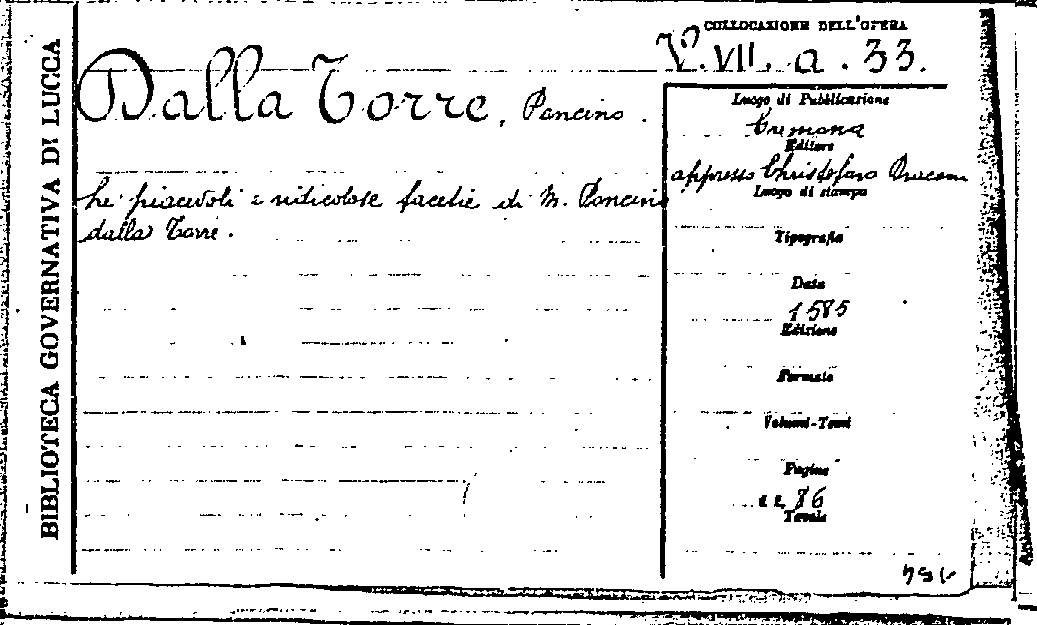 BIBLIOTECA GOVERNATIVA DI LUCCA
COLLOCAZIONE DELL'OPERA
V. VII. a. 33.
Dalla Torre, Poncino.
Le piacevoli e ridicolose facetie di M. Poncino
dalla Torre.
Luogo di Pubblicazione
Cremona
Editore
appresso Christoforo Draconi
Luogo di stampa
Tipografia
Data
1585
Edizione
Formato
Volumi-Tomi
Pagine
86
Tavole